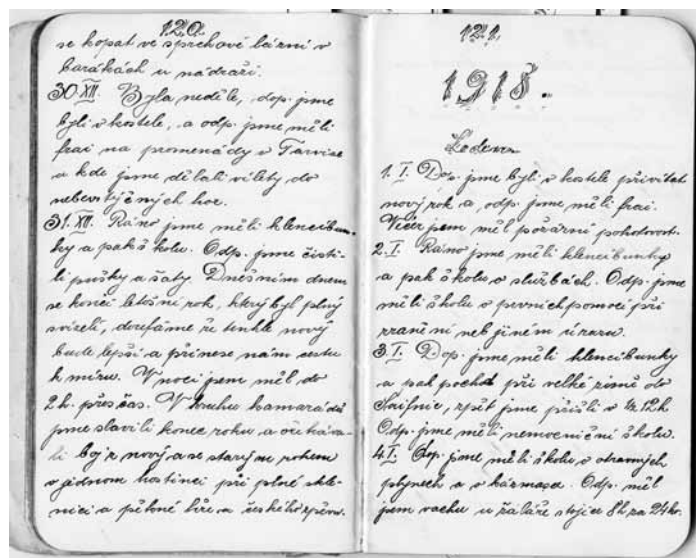 120.
se kopat ve sprchové lázni v
barákách u nádraží.
30.XII. Byla neděle, dop. jme
byli v kostele, a odp. jsme měli
frai na promenády v Tarvise
a kde jsme dělali vílety do
nebevtyčných hor.
31.XII. Ráno jsme měli klencibun-
ky a pak školu. Odp. jsme čisti-
li pušky a šaty. Dnešním dnem
se končí letošní rok, který byl plný
svízelí, doufáme že tenhle nový
bude lepší a přinese nám cestu
k míru. V noci jsem měl do
2h. přes čas. V kruhu kamarádů
jsme slavili konec roku, a očekáva-
li boj z nový a se starým rokem
v jednom hostinci při plné skle-
nici a pěkné hře a českého zpěvu.
121.
1918.
Leden
1. I. Dop. jsme byli v kostele přivítat
nový rok a, odp. jsme měli frai.
Večer jsem měl požární pohotovost.
2. I. Ráno jsme měli klencibunky
a pak školu o službách. Odp. jsme
měli školu o prvních pomoci při
zranění neb jiném úrazu.
3. I. Dop. jsme měli klencibunky
a pak pochod při velké zimě do
zpět jsme přišli v 12h
Odp. jsme měli nemocniční školu.
4. I. Dop. jsme měli školu o otravných
plynech a o Odp. měl
jsem vachu u žaláře stojíce 8h za 24h.